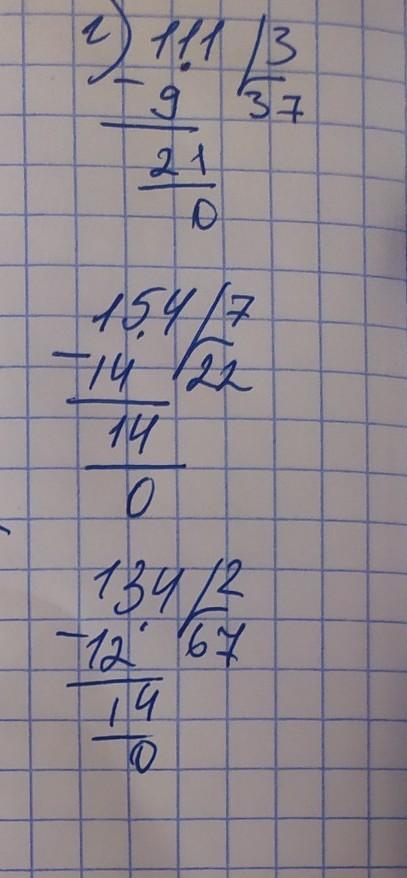 2) 111 / 3
- 9 37
21
0
154 / 7
- 14 22
14
0
134 / 2
- 12 67
14
0